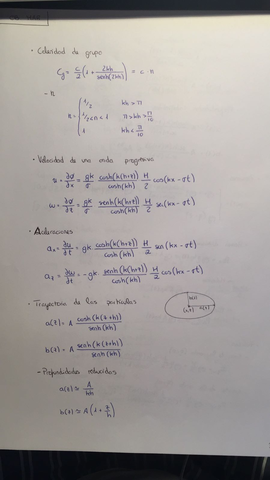 · Celeridad de grupo
Cg = c/2 (1 + 2kh/senh(2kh)) = c n
- n
n = { 1/2 kh > π
1/2 < n < 1 π > kh > π/10
1 kh < π/10
· Velocidad de una onda progresiva
u = ∂ø/∂x = gk/σ cosh(k(h+z))/cosh(kh) H/2 cos(kx - σt)
w = ∂ø/∂z = gk/σ senh(k(h+z))/cosh(kh) H/2 sen(kx - σt)
· Aceleraciones
ax = ∂u/∂t = gk cosh(k(h+z))/cosh(kh) H/2 sen(kx - σt)
az = ∂w/∂t = -gk senh(k(h+z))/cosh(kh) H/2 cos(kx - σt)
· Trayectoria de las partículas
a(z) = A cosh(k(z+h))/senh(kh)
b(z) = A senh(k(z+h))/senh(kh)
b(z)
(x,z) a(z)
- Profundidades reducidas
a(z) ≈ A/kh
b(z) ≈ A(1 + z/h)